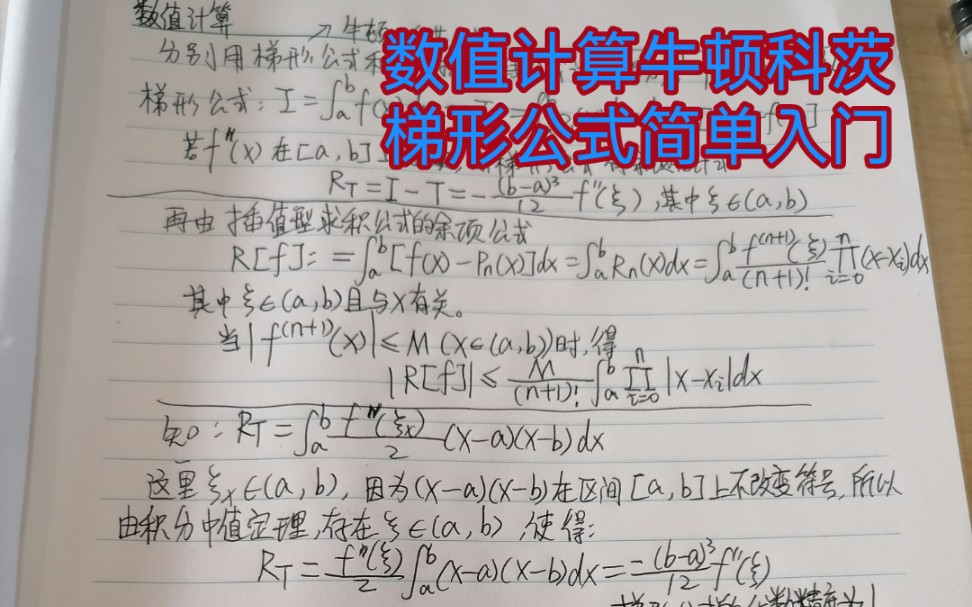 数值计算
数值计算牛顿科茨
梯形公式简单入门
→牛顿
分别用梯形公式和
梯形公式: I=∫ₐᵇf(
若f″(x)在[a,b]上
R_T=I-T=-(b-a)³/12 f″(ξ),其中ξ∈(a,b)
再由插值型求积公式的余项公式
R[f]:=∫ₐᵇ[f(x)-Pₙ(x)]dx=∫ₐᵇRₙ(x)dx=∫ₐᵇ f⁽ⁿ⁺¹⁾(ξ)/(n+1)! ∏ᵢ₌₀ⁿ(x-xᵢ)dx
其中ξ∈(a,b)且与x有关。
当|f⁽ⁿ⁺¹⁾(x)|≤M(x∈(a,b))时,得
|R[f]|≤M/(n+1)! ∫ₐᵇ∏ᵢ₌₀ⁿ|x-xᵢ|dx
知:R_T=∫ₐᵇ f″(ξₓ)/2 (x-a)(x-b)dx
这里ξₓ∈(a,b),因为(x-a)(x-b)在区间[a,b]上不改变符号,所以
由积分中值定理,存在ξ∈(a,b),使得:
R_T=f″(ξ)/2 ∫ₐᵇ(x-a)(x-b)dx=-(b-a)³/12 f″(ξ)